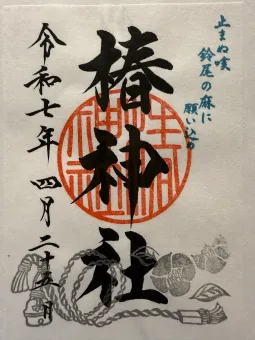 止まぬ咳
鈴尾の麻に
願い込め
椿神社
令和七年 四月二十五日